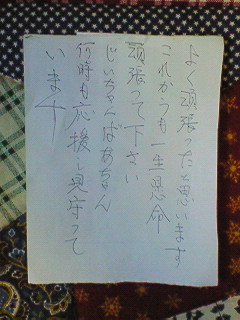 よく頑張ったと思います
これからも一生懸命
頑張って下さい
じいちゃんばあちゃん
何時も応援し見守って
います